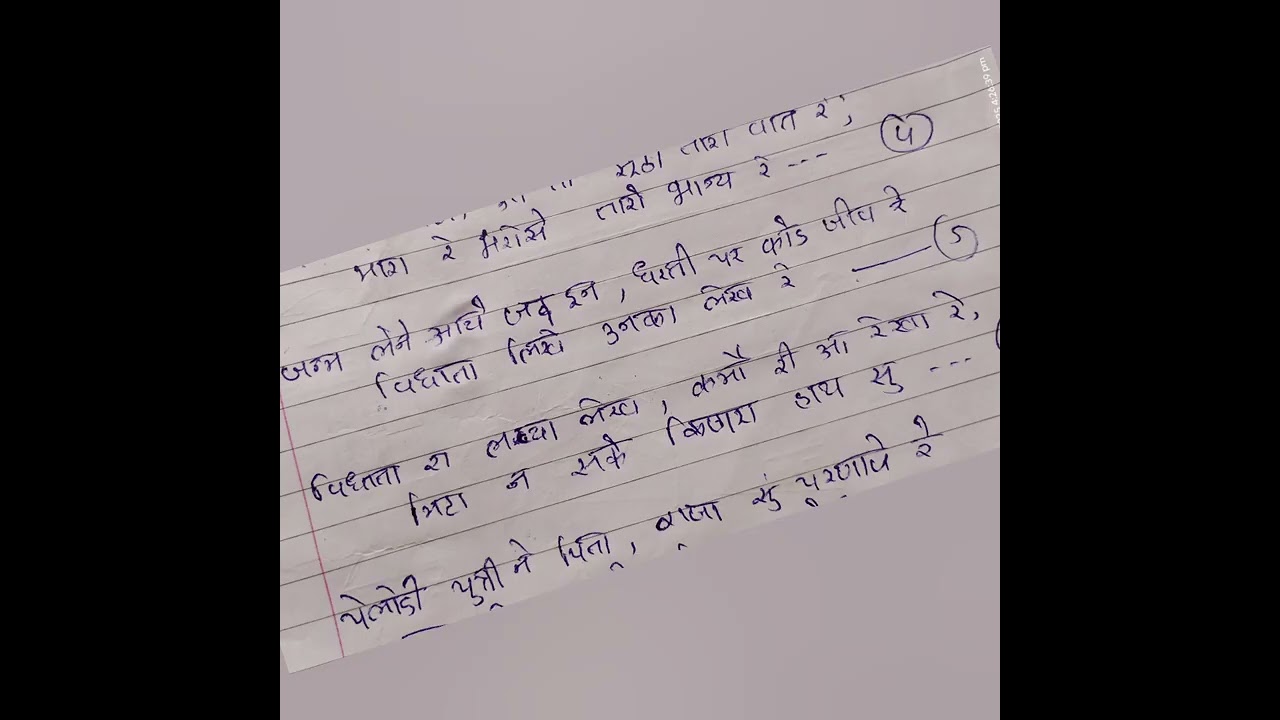 झूठा तारा वात रे,
मारा रे भरोसे तारो भाग्य रे --- ५
जन्म लेने आये जद इन, धरती पर कोई जीव रे
विधाता लिखे उनका लेख रे —— ६
विधाता रा लख्या लेख, कर्मो री आ रेखा रे,
मिटा न सके किणरा हाथ सु ---
पेलोडी पुत्री ने पिता, राजा सुं परणावे रे